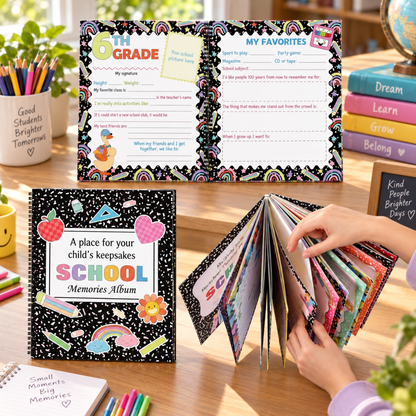 6TH
GRADE
Your school
picture here
My signature
Height: Weight:
My favorite class is
is the teacher's name.
I'm really into activities like
If I could start a new school club, it would be:
My best friends are:
When my friends and I get
together, we like to:
MY FAVORITES
Sport to play: Party game:
Magazine: CD or tape:
School subject:
I'd like people 100 years from now to remember me for:
The thing that makes me stand out from the crowd is:
When I grow up I want to:
Good
Students
Brighter
Tomorrows
Dream
Learn
Grow
Belong
Kind
People
Brighter
Days
A place for your
child's keepsakes
SCHOOL
Memories Album
Small
Moments
Big
Memories